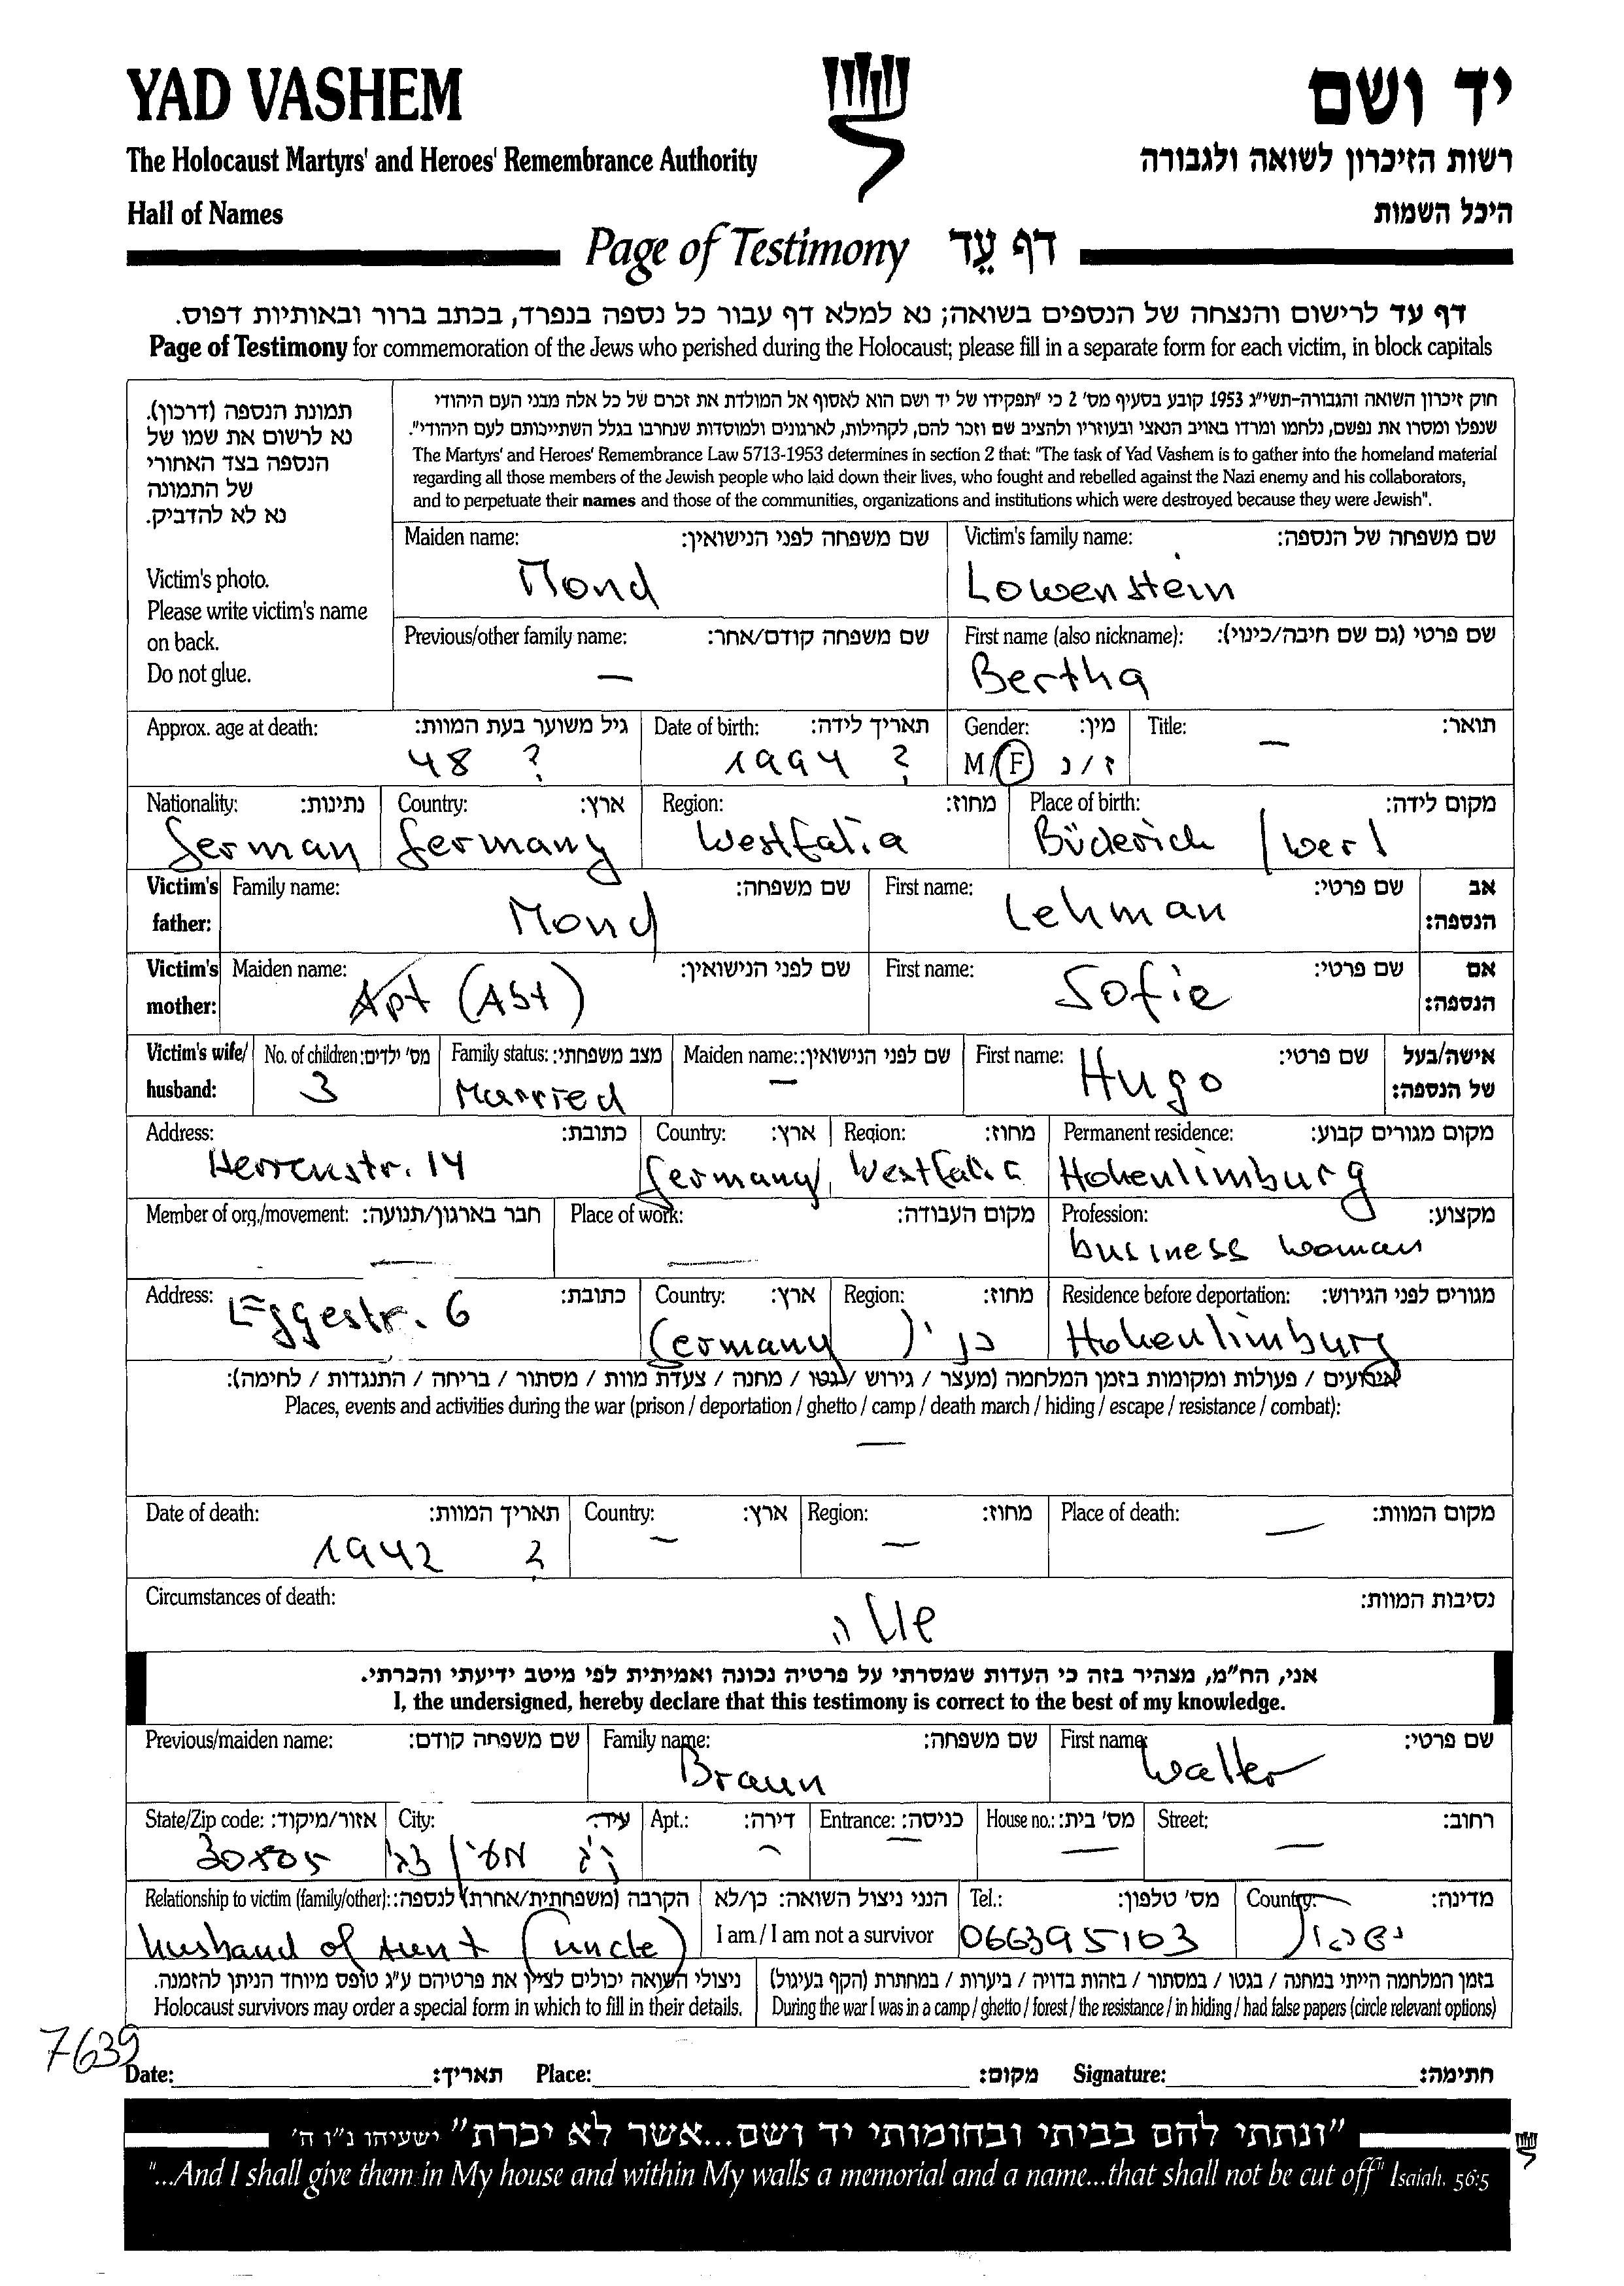 YAD VASHEM
יד ושם
The Holocaust Martyrs' and Heroes' Remembrance Authority
רשות הזיכרון לשואה ולגבורה
Hall of Names
היכל השמות
Page of Testimony דף עֵד
דף עד לרישום והנצחה של הנספים בשואה; נא למלא דף עבור כל נספה בנפרד, בכתב ברור ובאותיות דפוס.
Page of Testimony for commemoration of the Jews who perished during the Holocaust; please fill in a separate form for each victim, in block capitals
תמונת הנספה (דרכון).
נא לרשום את שמו של
הנספה בצד האחורי
של התמונה
נא לא להדביק.
Victim's photo.
Please write victim's name
on back.
Do not glue.
חוק זיכרון השואה והגבורה-תשי"ג 1953 קובע בסעיף מס' 2 כי "תפקידו של יד ושם הוא לאסוף אל המולדת את זכרם של כל אלה מבני העם היהודי
שנפלו ומסרו את נפשם, נלחמו ומרדו באויב הנאצי ובעוזריו ולהציב שם וזכר להם, לקהילות, לארגונים ולמוסדות שנחרבו בגלל השתייכותם לעם היהודי".
The Martyrs' and Heroes' Remembrance Law 5713-1953 determines in section 2 that: "The task of Yad Vashem is to gather into the homeland material
regarding all those members of the Jewish people who laid down their lives, who fought and rebelled against the Nazi enemy and his collaborators,
and to perpetuate their names and those of the communities, organizations and institutions which were destroyed because they were Jewish".
Maiden name: שם משפחה לפני הנישואין: Victim's family name: שם משפחה של הנספה:
Mond Lowenstein
Previous/other family name: שם משפחה קודם/אחר: First name (also nickname): שם פרטי (גם שם חיבה/כינוי):
— Bertha
Approx. age at death: גיל משוער בעת המוות: Date of birth: תאריך לידה: Gender: מין: Title: תואר:
48 ? 1994 ? M/F ז/נ —
Nationality: נתינות: Country: ארץ: Region: מחוז: Place of birth: מקום לידה:
German Germany Westfalia Büderich / Werl
Victim's father: Family name: שם משפחה: First name: שם פרטי: אב הנספה:
Mond Lehman
Victim's mother: Maiden name: שם לפני הנישואין: First name: שם פרטי: אם הנספה:
Apt (Ast) Sofie
Victim's wife/ husband: No. of children: מס' ילדים: Family status: מצב משפחתי: Maiden name: שם לפני הנישואין: First name: שם פרטי: אישה/בעל של הנספה:
3 Married — Hugo
Address: כתובת: Country: ארץ: Region: מחוז: Permanent residence: מקום מגורים קבוע:
Herrenstr. 14 Germany Westfalia Hohenlimburg
Member of org./movement: חבר בארגון/תנועה: Place of work: מקום העבודה: Profession: מקצוע:
— — business woman
Address: כתובת: Country: ארץ: Region: מחוז: Residence before deportation: מגורים לפני הגירוש:
Eggestr. 6 Germany כנ"ל Hohenlimburg
אירועים / פעולות ומקומות בזמן המלחמה (מעצר / גירוש / גטו / מחנה / צעדת מוות / מסתור / בריחה / התנגדות / לחימה):
Places, events and activities during the war (prison / deportation / ghetto / camp / death march / hiding / escape / resistance / combat):
—
Date of death: תאריך המוות: Country: ארץ: Region: מחוז: Place of death: מקום המוות:
1942 ? — — —
Circumstances of death: נסיבות המוות:
שואה
אני, הח"מ, מצהיר בזה כי העדות שמסרתי על פרטיה נכונה ואמיתית לפי מיטב ידיעתי והכרתי.
I, the undersigned, hereby declare that this testimony is correct to the best of my knowledge.
Previous/maiden name: שם משפחה קודם: Family name: שם משפחה: First name: שם פרטי:
Braun Walter
State/Zip code: אזור/מיקוד: City: עיר: Apt.: דירה: Entrance: כניסה: House no.: מס' בית: Street: רחוב:
30805 — — — —
Relationship to victim (family/other): הקרבה (משפחתית/אחרת) לנספה: הנני ניצול השואה: כן/לא Tel.: מס' טלפון: Country: מדינה:
husband of Aunt (uncle) I am / I am not a survivor 066395103 ישראל
ניצולי השואה יכולים לציין את פרטיהם ע"ג טופס מיוחד הניתן להזמנה.
Holocaust survivors may order a special form in which to fill in their details.
בזמן המלחמה הייתי במחנה / בגטו / במסתור / בזהות בדויה / ביערות / במחתרת (הקף בעיגול)
During the war I was in a camp / ghetto / forest / the resistance / in hiding / had false papers (circle relevant options)
7639
Date: תאריך: Place: מקום: Signature: חתימה:
"ונתתי להם בביתי ובחומותי יד ושם...אשר לא יכרת" ישעיהו נ"ו ה'
"...And I shall give them in My house and within My walls a memorial and a name...that shall not be cut off" Isaiah. 56:5